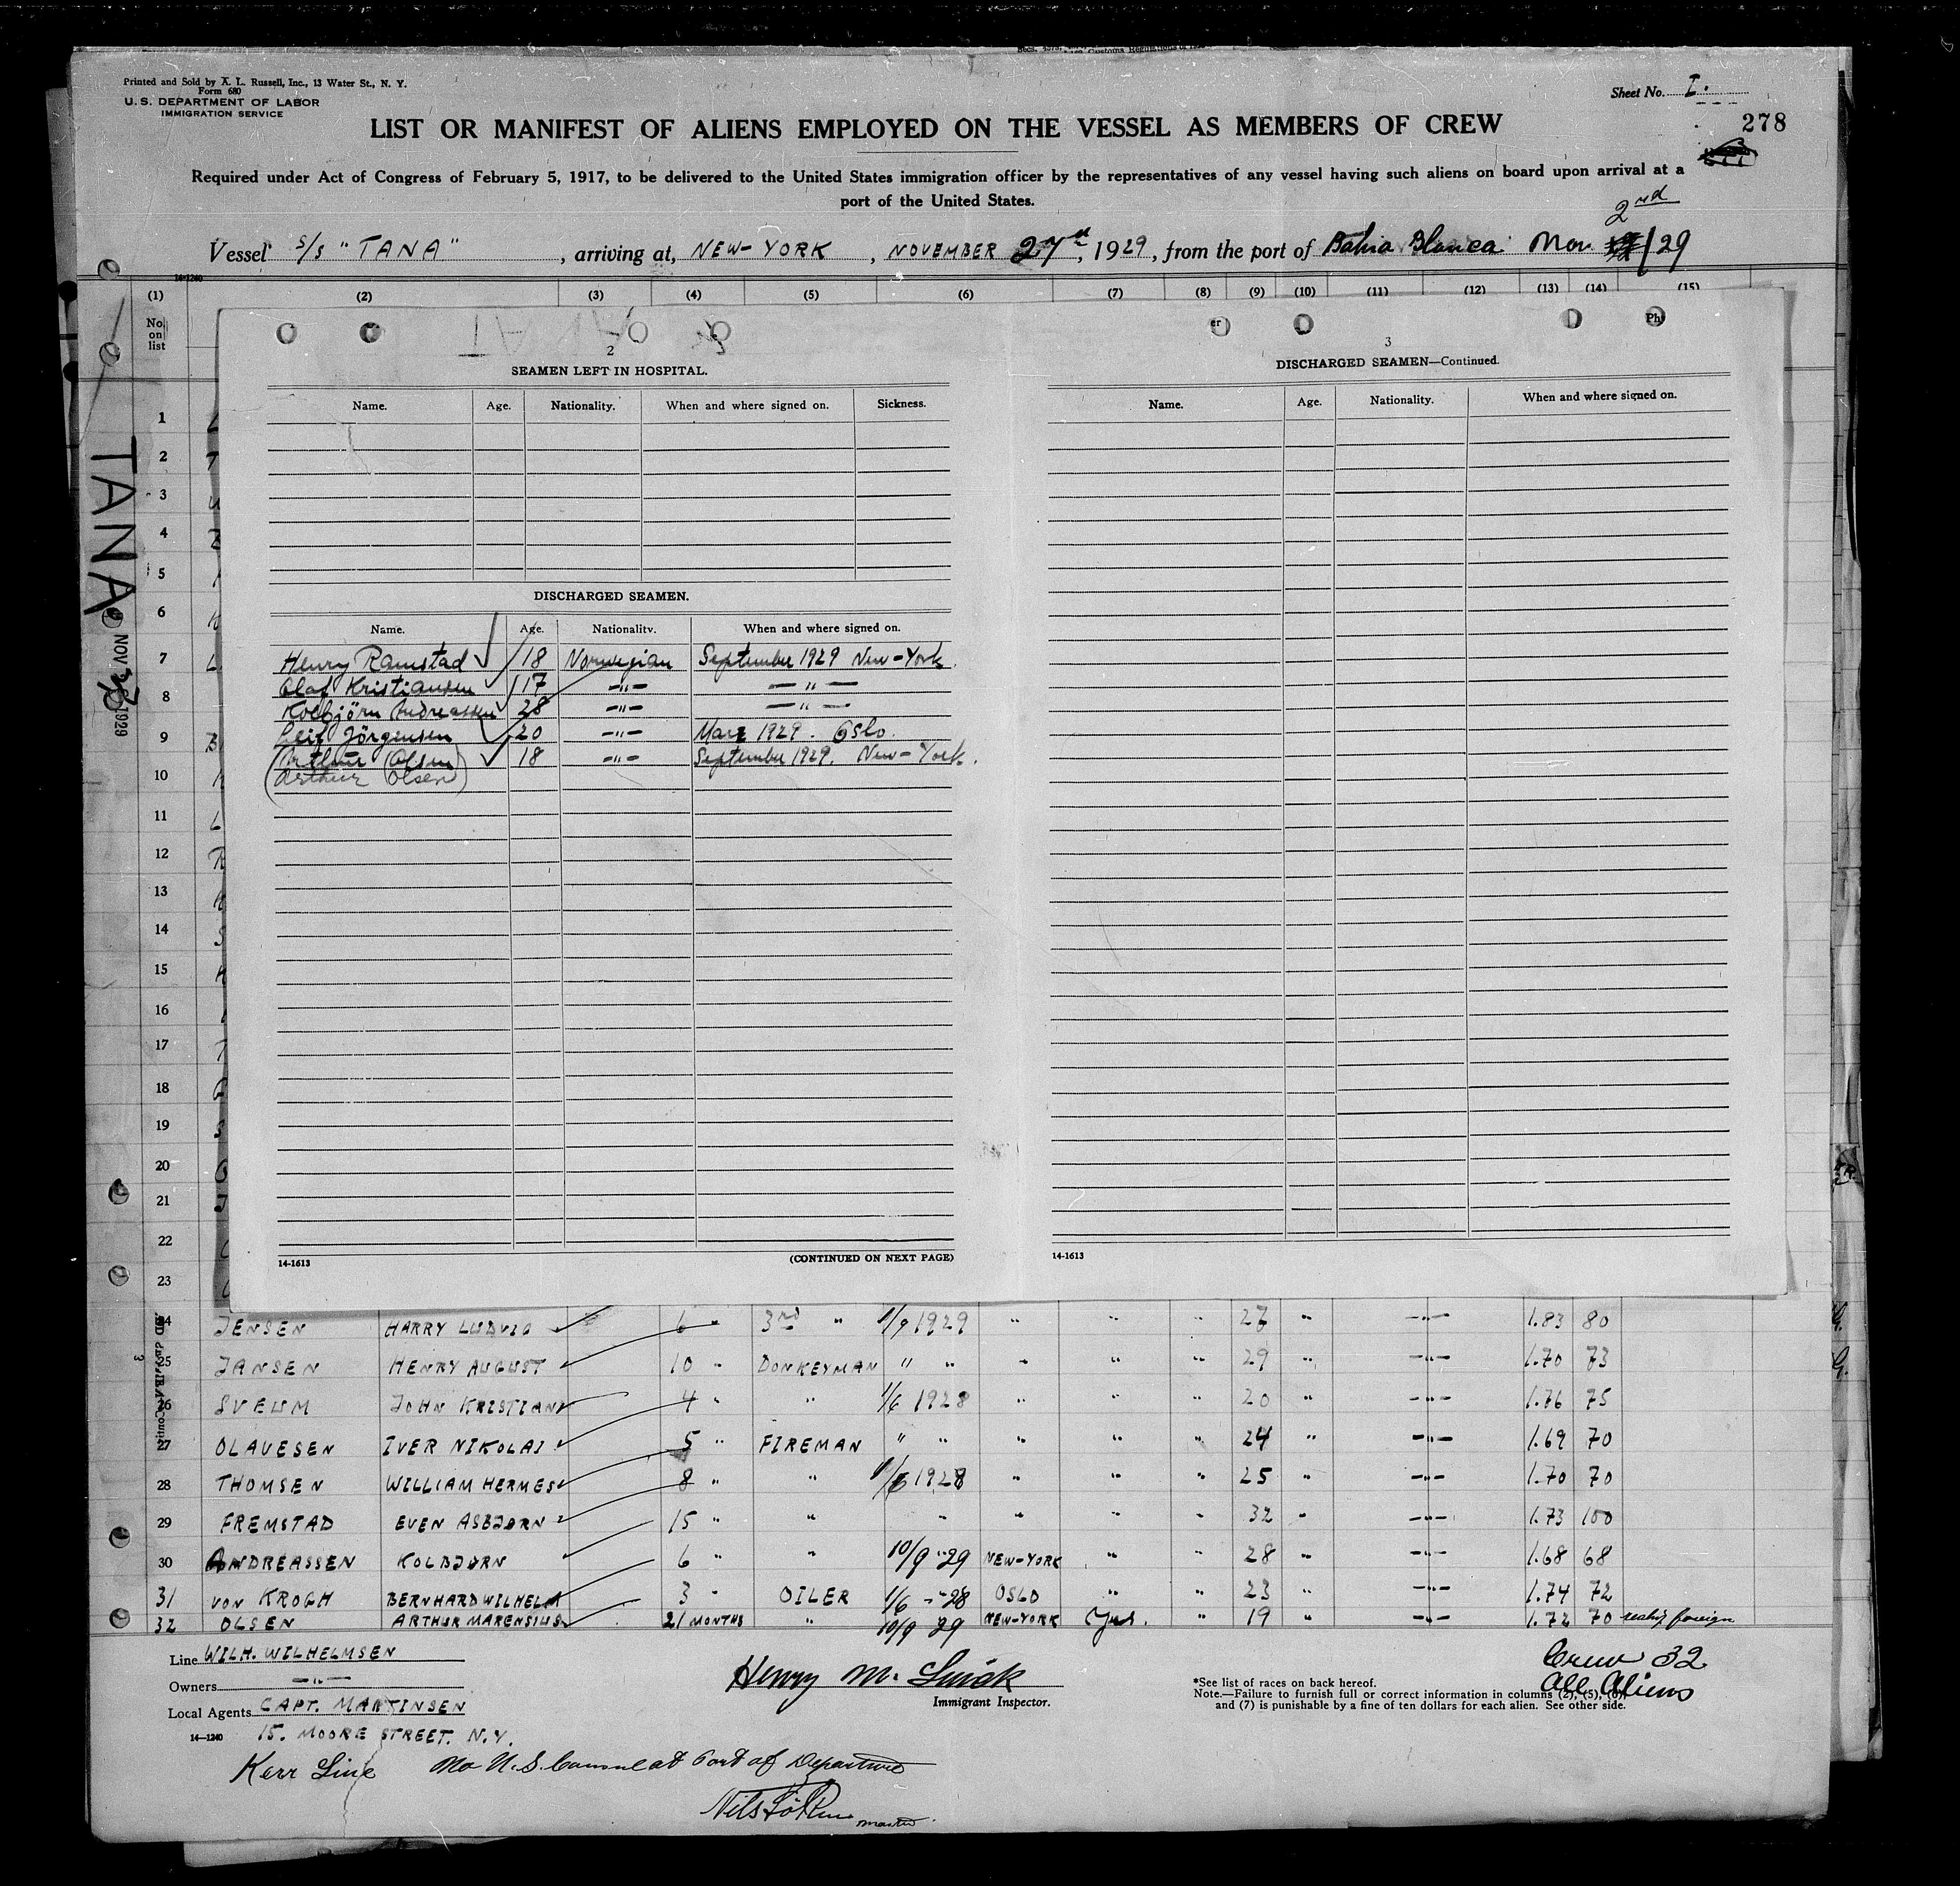 Printed and Sold by A. L. Russell, Inc., 13 Water St., N. Y.
Form 680
U. S. DEPARTMENT OF LABOR
IMMIGRATION SERVICE
Sheet No. I.
278
LIST OR MANIFEST OF ALIENS EMPLOYED ON THE VESSEL AS MEMBERS OF CREW
Required under Act of Congress of February 5, 1917, to be delivered to the United States immigration officer by the representatives of any vessel having such aliens on board upon arrival at a
port of the United States.
2nd
Vessel S/S "TANA", arriving at, NEW-YORK, NOVEMBER 27, 1929, from the port of Bahia Blanca Nov /29
14-1240
(1) (2) (3) (4) (5) (6) (7) (8) (9) (10) (11) (12) (13) (14) (15)
No. on list
TANA
NOV 1929
2
SEAMEN LEFT IN HOSPITAL.
Name. Age. Nationality. When and where signed on. Sickness.
DISCHARGED SEAMEN.
Name. Age. Nationality. When and where signed on.
Henry Ramstad 18 Norwegian September 1929 New-York.
Olaf Kristiansen 17 -"- -"-
Kolbjörn Andreassen 28 -"- -"-
Leif Jörgensen 20 -"- Mars 1929. Oslo.
Arthur Olsen 18 -"- September 1929. New-York.
(Arthur Olsen)
14-1613 (CONTINUED ON NEXT PAGE)
3
DISCHARGED SEAMEN—Continued.
Name. Age. Nationality. When and where signed on.
14-1613
1
2
3
4
5
6
7
8
9
10
11
12
13
14
15
16
17
18
19
20
21
22
23
24 JENSEN HARRY LUDVIG 6 " 3rd " 1/9 1929 " " " 27 " -"- 1.83 80
25 JANSEN HENRY AUGUST 10 " DONKEYMAN " " " " " 29 " -"- 1.70 73
26 SVEUM JOHN KRISTIAN 4 " " 1/6 1928 " " " 20 " -"- 1.76 75
27 OLAVESEN IVER NIKOLAI 5 " FIREMAN " " " " " 24 " -"- 1.69 70
28 THOMSEN WILLIAM HERMES 8 " " 1/6 1928 " " " 25 " -"- 1.70 70
29 FREMSTAD EVEN ASBJØRN 15 " " " " " " " 32 " -"- 1.73 100
30 ANDREASSEN KOLBJØRN 6 " " 10/9 -29 NEW-YORK " " 28 " -"- 1.68 68
31 VON KROGH BERNHARD WILHELM 3 " OILER 1/6 -28 OSLO " " 23 " -"- 1.74 72
32 OLSEN ARTHUR MARENSIUS 21 MONTHS " 10/9 29 NEW-YORK Yes. " 19 " -"- 1.72 70 foreign
Line WILH. WILHELMSEN
Owners -"-
Local Agents CAPT. MARTINSEN
14-1240 15. MOORE STREET. N.Y.
Kerr Line No U.S. Consul at Port of Departure
Henry M.
Immigrant Inspector.
*See list of races on back hereof.
Note.—Failure to furnish full or correct information in columns (2), (5), (6),
and (7) is punishable by a fine of ten dollars for each alien. See other side.
Crew 32
All Aliens
Nils
master.